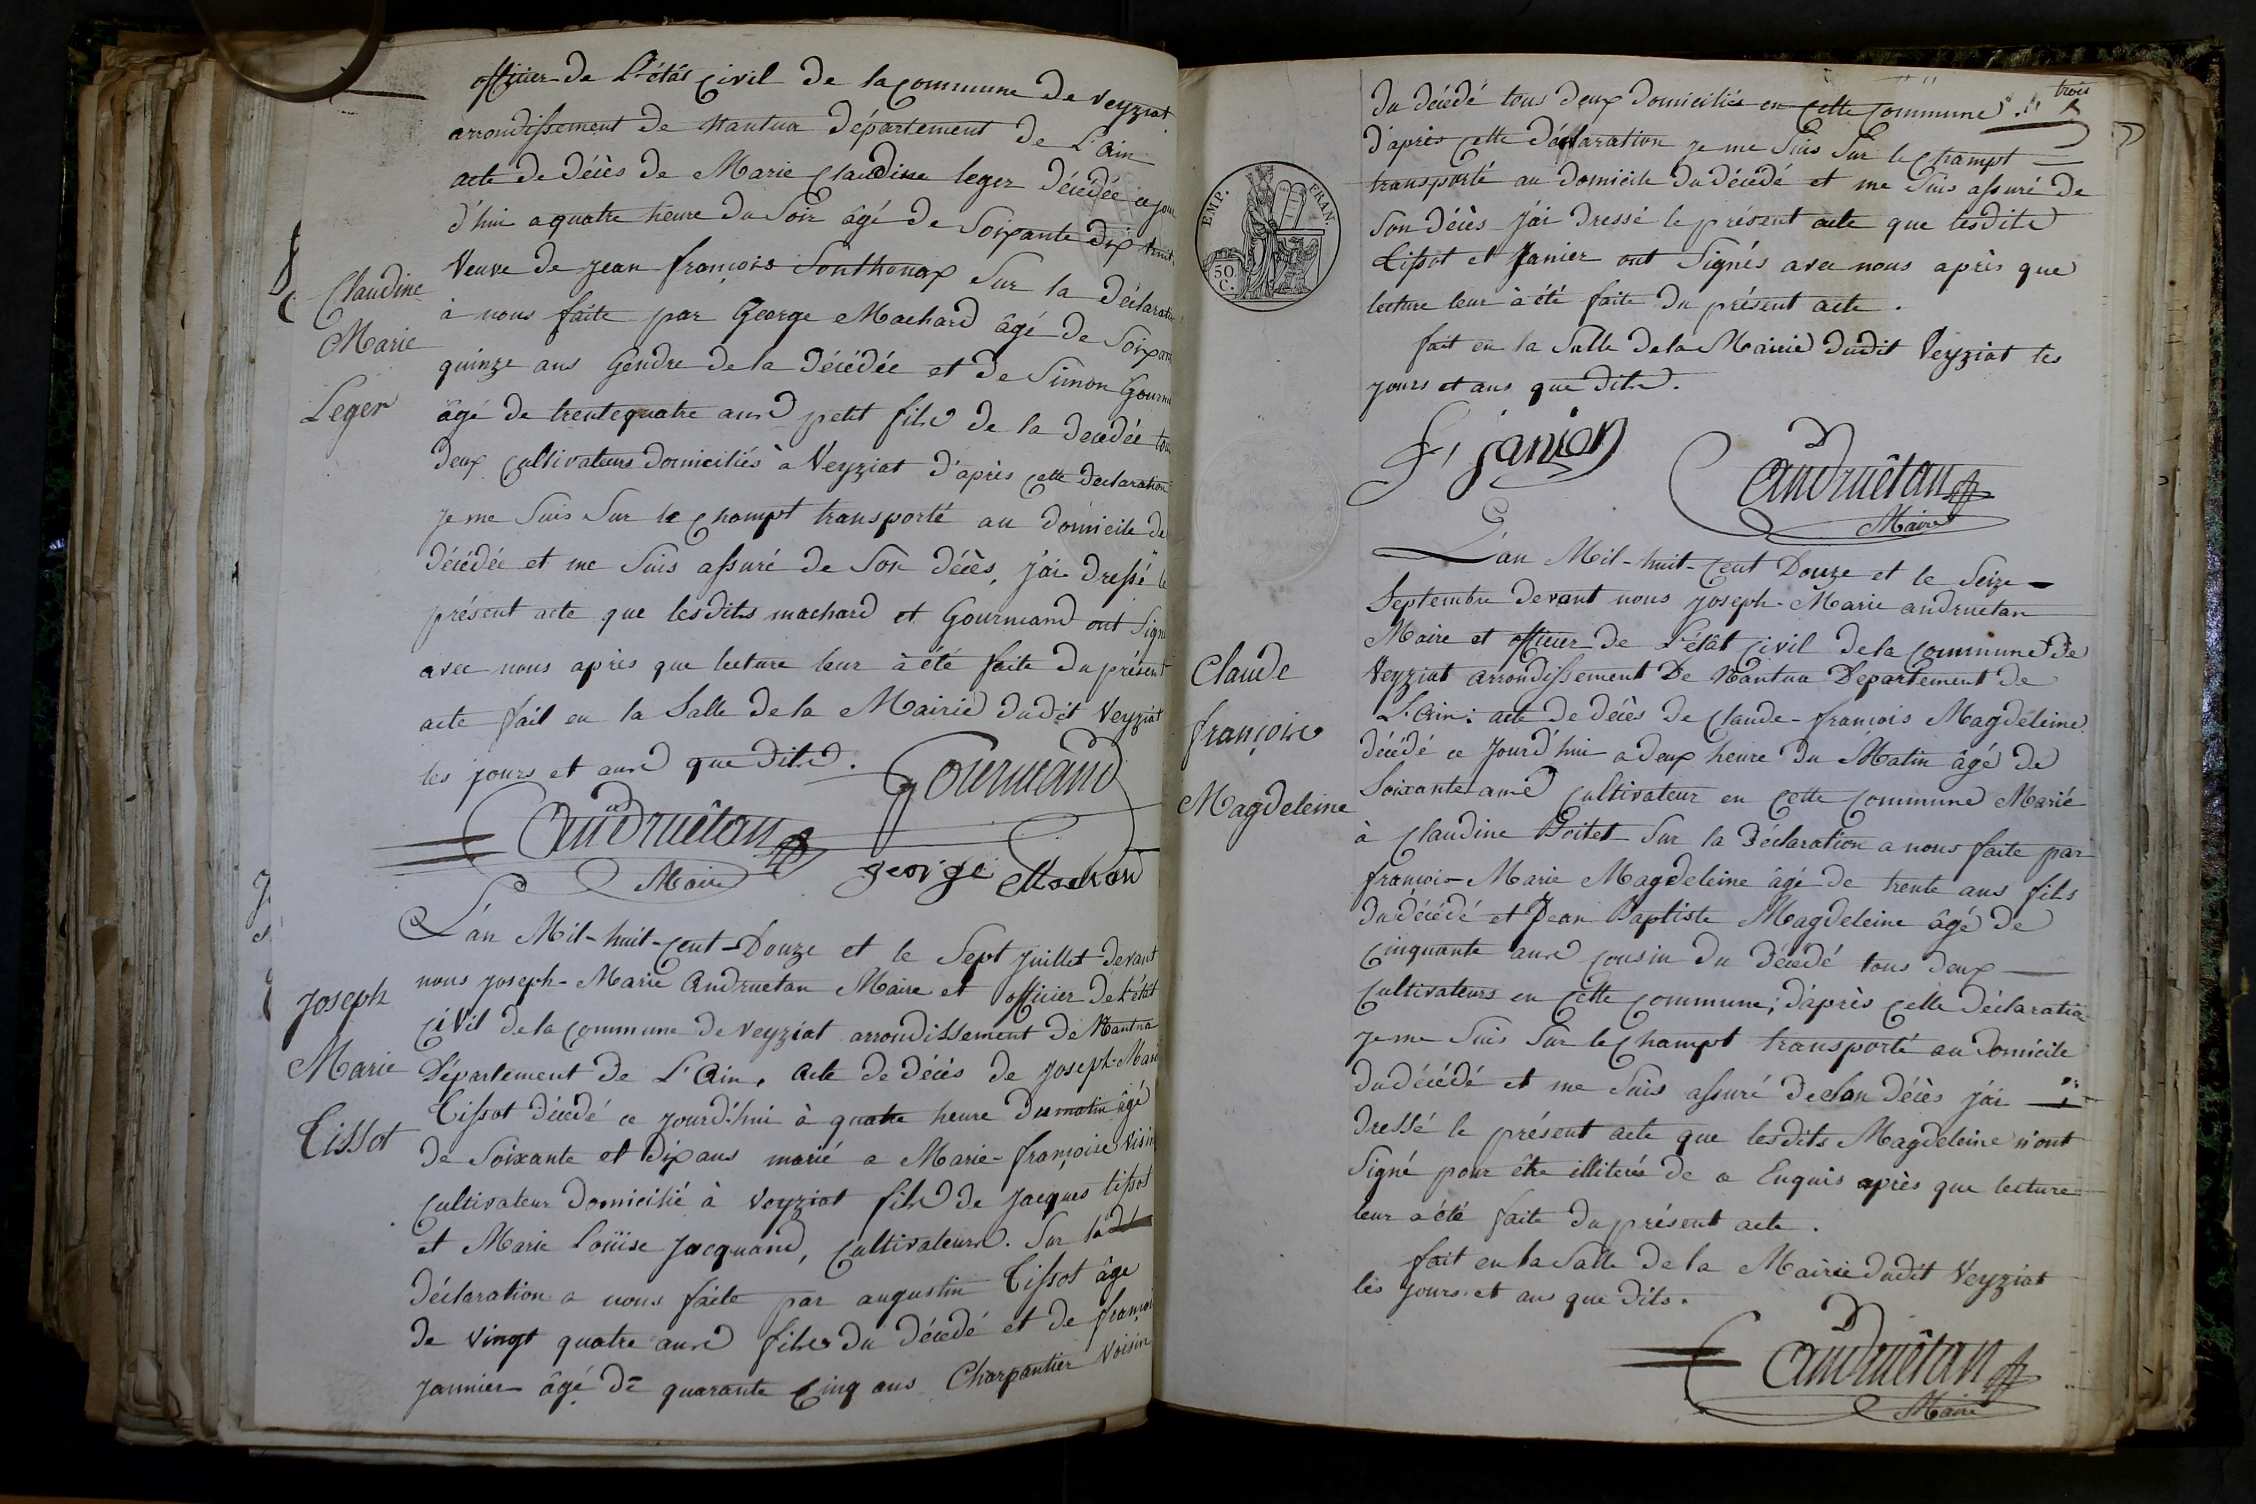 officier de L'état civil de la commune de veyziat
arrondissement de nantua département de L'ain
acte de décès de Marie Claudine leger décédée ce jour
d'hui a quatre heure du Soir âgé de Soixante dix huit
Veuve de jean françois Sonthonax Sur la déclaration
à nous faite par George Machard âgé de Soixan
quinze ans Gendre de la décédée et de Simon Gourm
âgé de trentequatre ans petit fils de la decedée tou
deux cultivateurs domiciliés à Veyziat d'après cette declaration
je me Suis Sur le champt transporté au domicile de
décédée et me Suis assuré de Son décès, j'ai dressé le
présent acte que lesdits machard et Gourmand ont Sign
avec nous après que lecture leur à été faite du présent
acte fait en la Salle de la Mairie dudit Veyziat
les jours et ans que dits.
Claudine
Marie
Leger
Gourmand
andruêtan
Maire
george Machard
L'an Mil-huit-Cent-Douze et le Sept juillet devant
nous joseph-Marie andruetan Maire et officier de l'état
civil de la commune de veyziat arrondissement de Nantua
Département de L'ain, acte de décès de joseph-Marie
Tissot décédé ce jourd'hui à quatre heure du matin âgé
de Soixante et dix ans marié a Marie-françoise
cultivateur domicilié à veyziat fils de jacques tissot
et Marie Loüise jacquand, cultivateurs. Sur la
déclaration a nous faite par augustin Tissot âge
de vingt quatre ans fils du décédé et de françoi
jannier âgé de quarante Cinq ans Charpantier voisin
joseph
Marie
Tissot
trois
du décédé tous deux domiciliés en cette commune.
d'après cette déclaration je me Suis Sur le champt
transporté au domicile du décédé et me Suis assuré de
Son décès j'ai dressé le présent acte que lesdits
Tissot et Janier ont Signés avec nous après que
lecture leur à été faite du présent acte.
fait en la Salle de la Mairie dudit Veyziat les
jours et ans que dits.
EMP. FRAN.
50
C.
F janier
andruêtan
Maire
L'an Mil-huit-Cent Douze et le Seize
Septembre devant nous joseph-Marie andruetan
Maire et officier de L'état civil de la commune de
Veyziat arrondissement De Nantua Département de
L'ain: acte de décès de Claude-françois Magdeleine
décédé ce jourd'hui a deux heure du Matin âgé de
Soixante ans cultivateur en cette commune Marié
à Claudine Poitet Sur la Déclaration a nous faite par
françois-Marie Magdeleine âgé de trente ans fils
du décédé et Jean Baptiste Magdeleine âgé de
Cinquante ans cousin du décedé tous deux
cultivateurs en cette commune; d'après cette déclaration
je me Suis Sur le champt transporté au domicile
du décédé et me Suis assuré de Son décès j'ai
dressé le présent acte que lesdits Magdeleine n'ont
Signé pour être illiterés de ce Enquis après que lecture
leur a été faite du présent acte.
fait en la Salle de la Mairie dudit Veyziat
les jours et ans que dits.
Claude
françois
Magdeleine
andruêtan
Maire